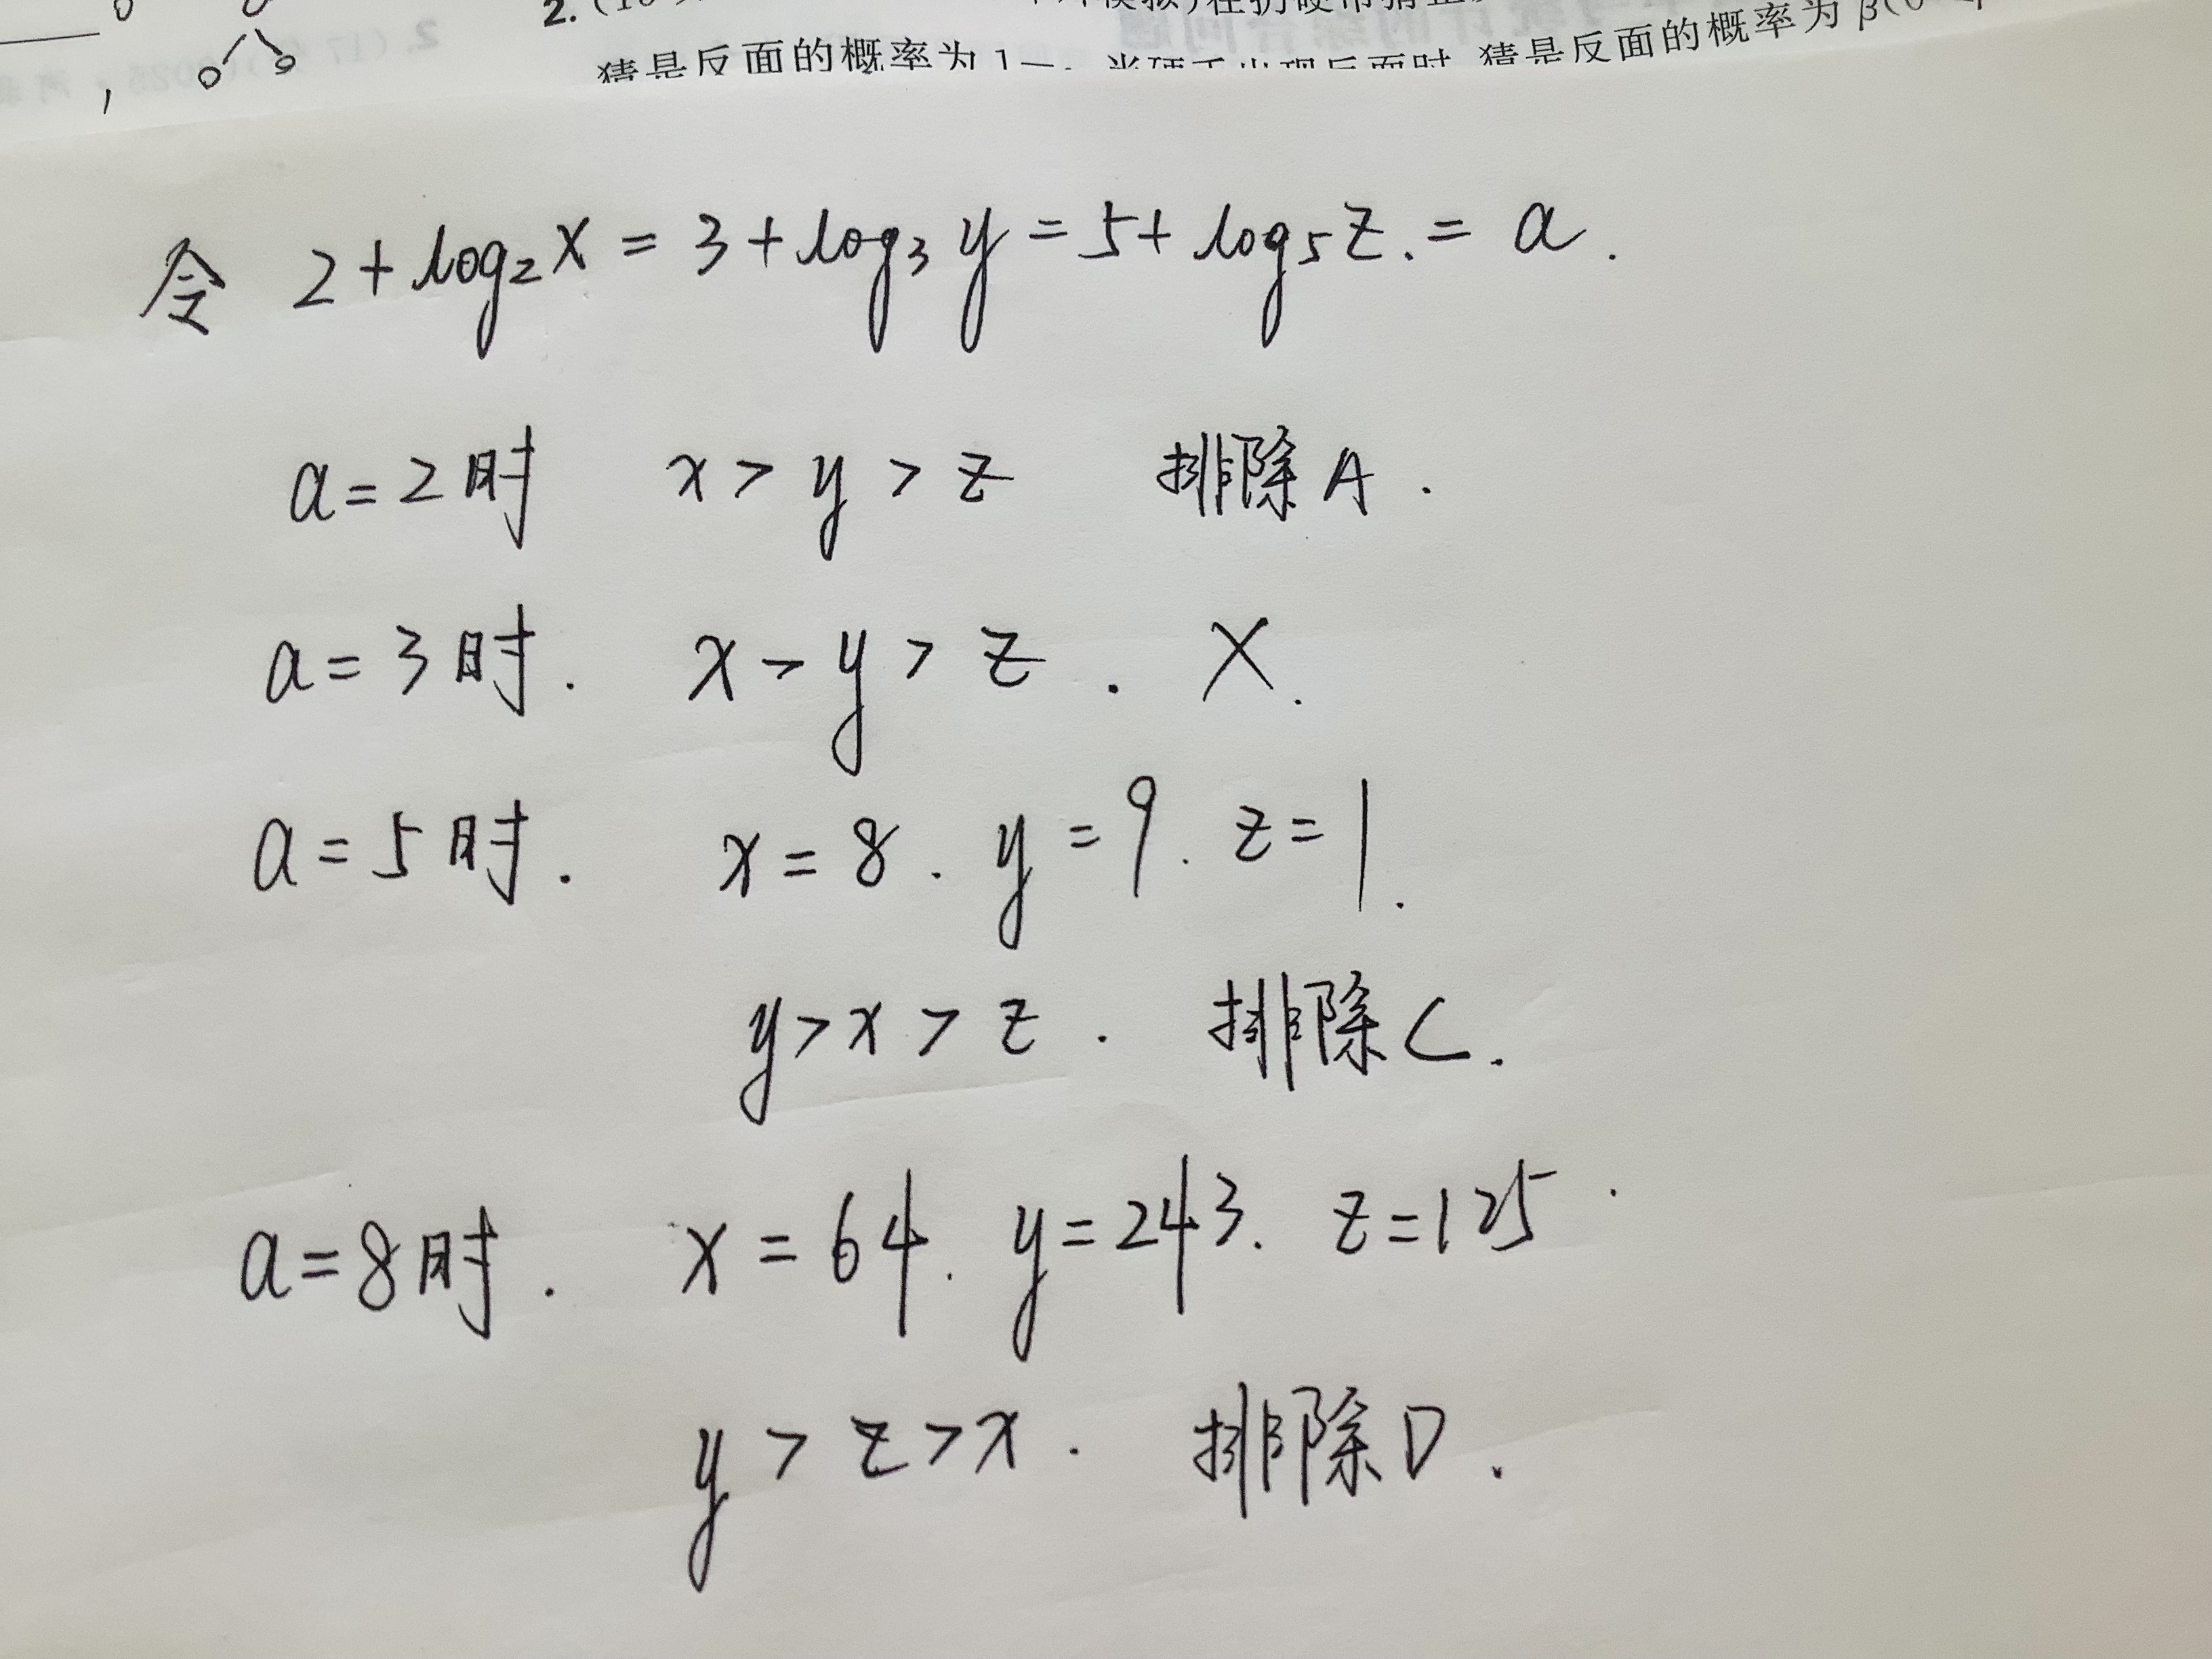 2.
猜是反面的概率为1-
猜是反面的概率为β(0
令 2+log₂x=3+log₃y=5+log₅z.=a.
a=2时 x>y>z 排除A.
a=3时. x>y>z. X.
a=5时. x=8. y=9. z=1.
y>x>z. 排除C.
a=8时. x=64. y=243. z=125.
y>z>x. 排除D.